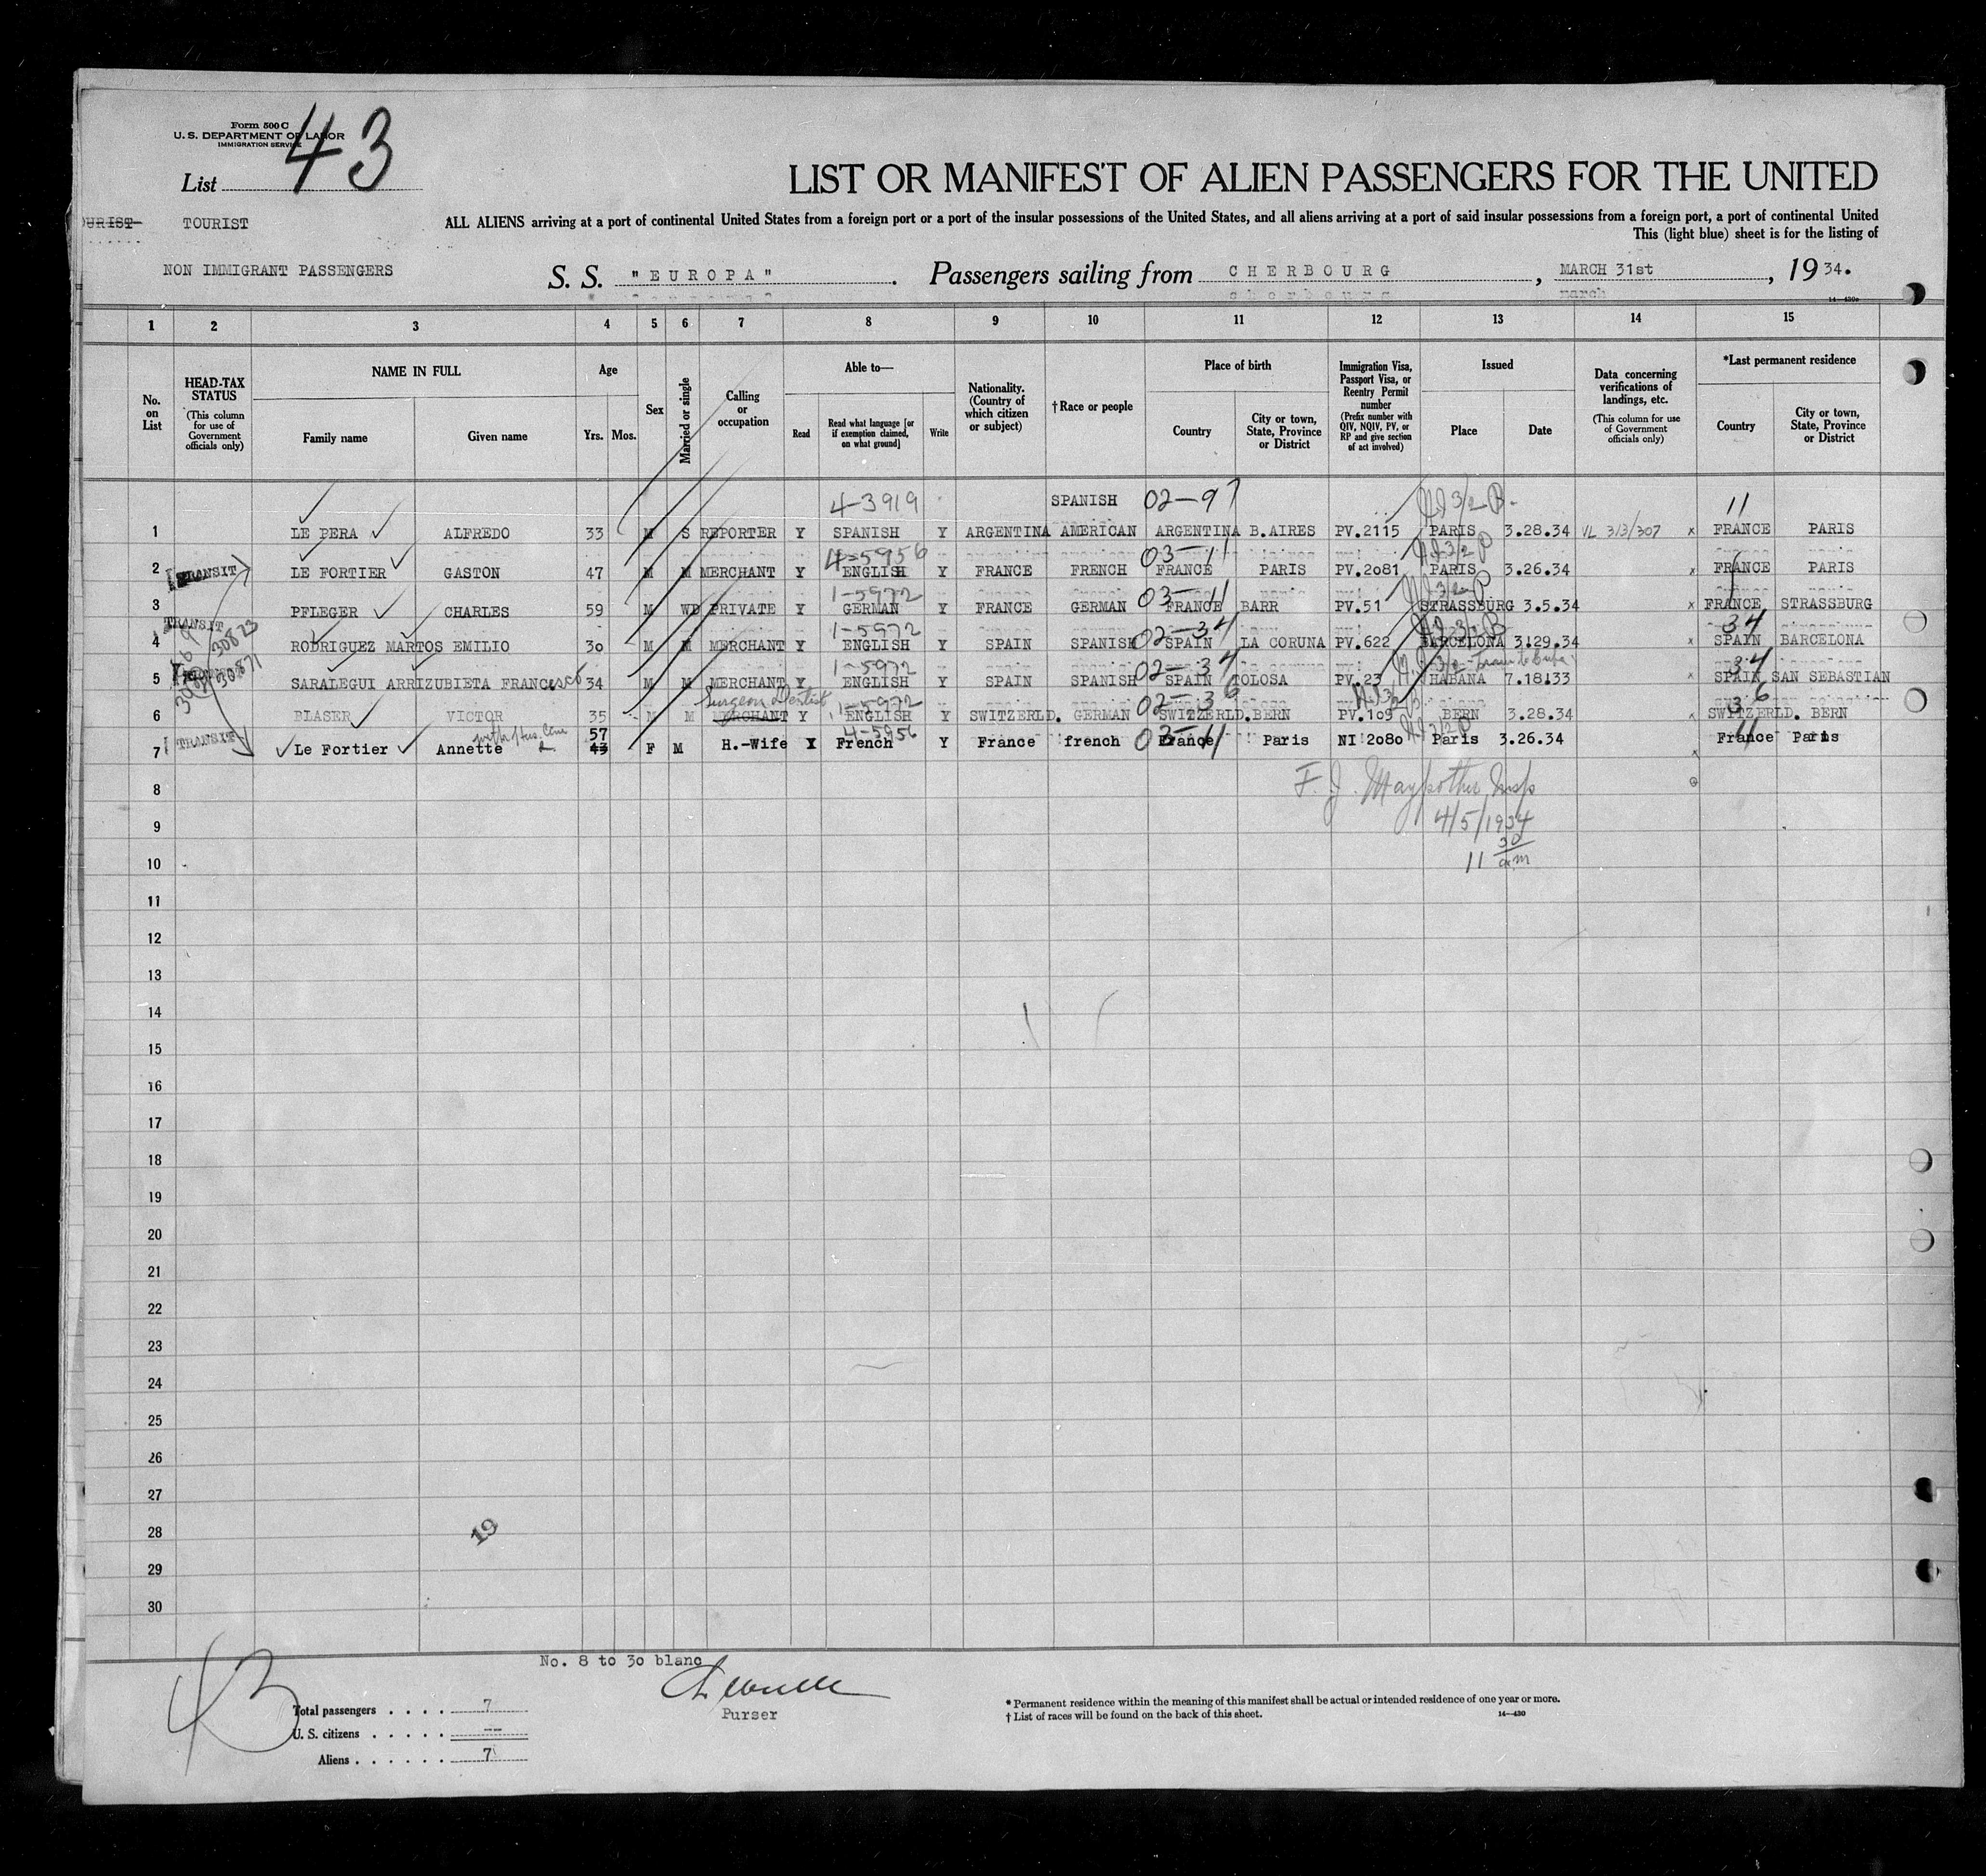 Form 500 C
U. S. DEPARTMENT OF LABOR
IMMIGRATION SERVICE
List 43
LIST OR MANIFEST OF ALIEN PASSENGERS FOR THE UNITED
TOURIST
ALL ALIENS arriving at a port of continental United States from a foreign port or a port of the insular possessions of the United States, and all aliens arriving at a port of said insular possessions from a foreign port, a port of continental United
This (light blue) sheet is for the listing of
NON IMMIGRANT PASSENGERS
S. S. "EUROPA". Passengers sailing from CHERBOURG, MARCH 31st, 1934.
1 2 3 4 5 6 7 8 9 10 11 12 13 14 15
No. on List
HEAD-TAX STATUS (This column for use of Government officials only)
NAME IN FULL
Family name
Given name
Age
Yrs. Mos.
Sex
Married or single
Calling or occupation
Able to—
Read
Read what language [or if exemption claimed, on what ground]
Write
Nationality. (Country of which citizen or subject)
† Race or people
Place of birth
Country
City or town, State, Province or District
Immigration Visa, Passport Visa, or Reentry Permit number (Prefix number with QIV, NQIV, PV, or RP and give section of act involved)
Issued
Place
Date
Data concerning verifications of landings, etc. (This column for use of Government officials only)
*Last permanent residence
Country
City or town, State, Province or District
4-3919 SPANISH 02-97 11
1 LE PERA ALFREDO 33 M S REPORTER Y SPANISH Y ARGENTINA AMERICAN ARGENTINA B.AIRES PV.2115 PARIS 3.28.34 VL 313/307 x FRANCE PARIS
4-5956 03-11
2 TRANSIT LE FORTIER GASTON 47 M M MERCHANT Y ENGLISH Y FRANCE FRENCH FRANCE PARIS PV.2081 PARIS 3.26.34 x FRANCE PARIS
1-5972 03-11
3 PFLEGER CHARLES 59 M WD PRIVATE Y GERMAN Y FRANCE GERMAN FRANCE BARR PV.51 STRASSBURG 3.5.34 x FRANCE STRASSBURG
TRANSIT 30873 1-5972 02-34 34
4 RODRIGUEZ MARTOS EMILIO 30 M M MERCHANT Y ENGLISH Y SPAIN SPANISH SPAIN LA CORUNA PV.622 BARCELONA 3!29.34 x SPAIN BARCELONA
30871 1-5972 02-34 34
5 SARALEGUI ARRIZUBIETA FRANCISCO 34 M M MERCHANT Y ENGLISH Y SPAIN SPANISH SPAIN TOLOSA PV.23 HABANA 7.18!33 x SPAIN SAN SEBASTIAN
Surgeon Dentist 1-5972 02-36 36
6 BLASER VICTOR 35 M M MERCHANT Y ENGLISH Y SWITZERLD. GERMAN SWITZERLD. BERN PV.109 BERN 3.28.34 x SWITZERLD. BERN
57 4-5956 03-11 11
7 TRANSIT Le Fortier Annette 43 F M H.-Wife X French Y France french France Paris NI 2080 Paris 3.26.34 x France Paris
8
F. J. Maypother Insp
9
4/5/1934
10
11 30 am
11
12
13
14
15
16
17
18
19
20
21
22
23
24
25
26
27
28
19
29
30
No. 8 to 30 blanc
43
Purser
Total passengers . . . . 7
U. S. citizens . . . . . —
Aliens . . . . . . 7
* Permanent residence within the meaning of this manifest shall be actual or intended residence of one year or more.
† List of races will be found on the back of this sheet.
14—430